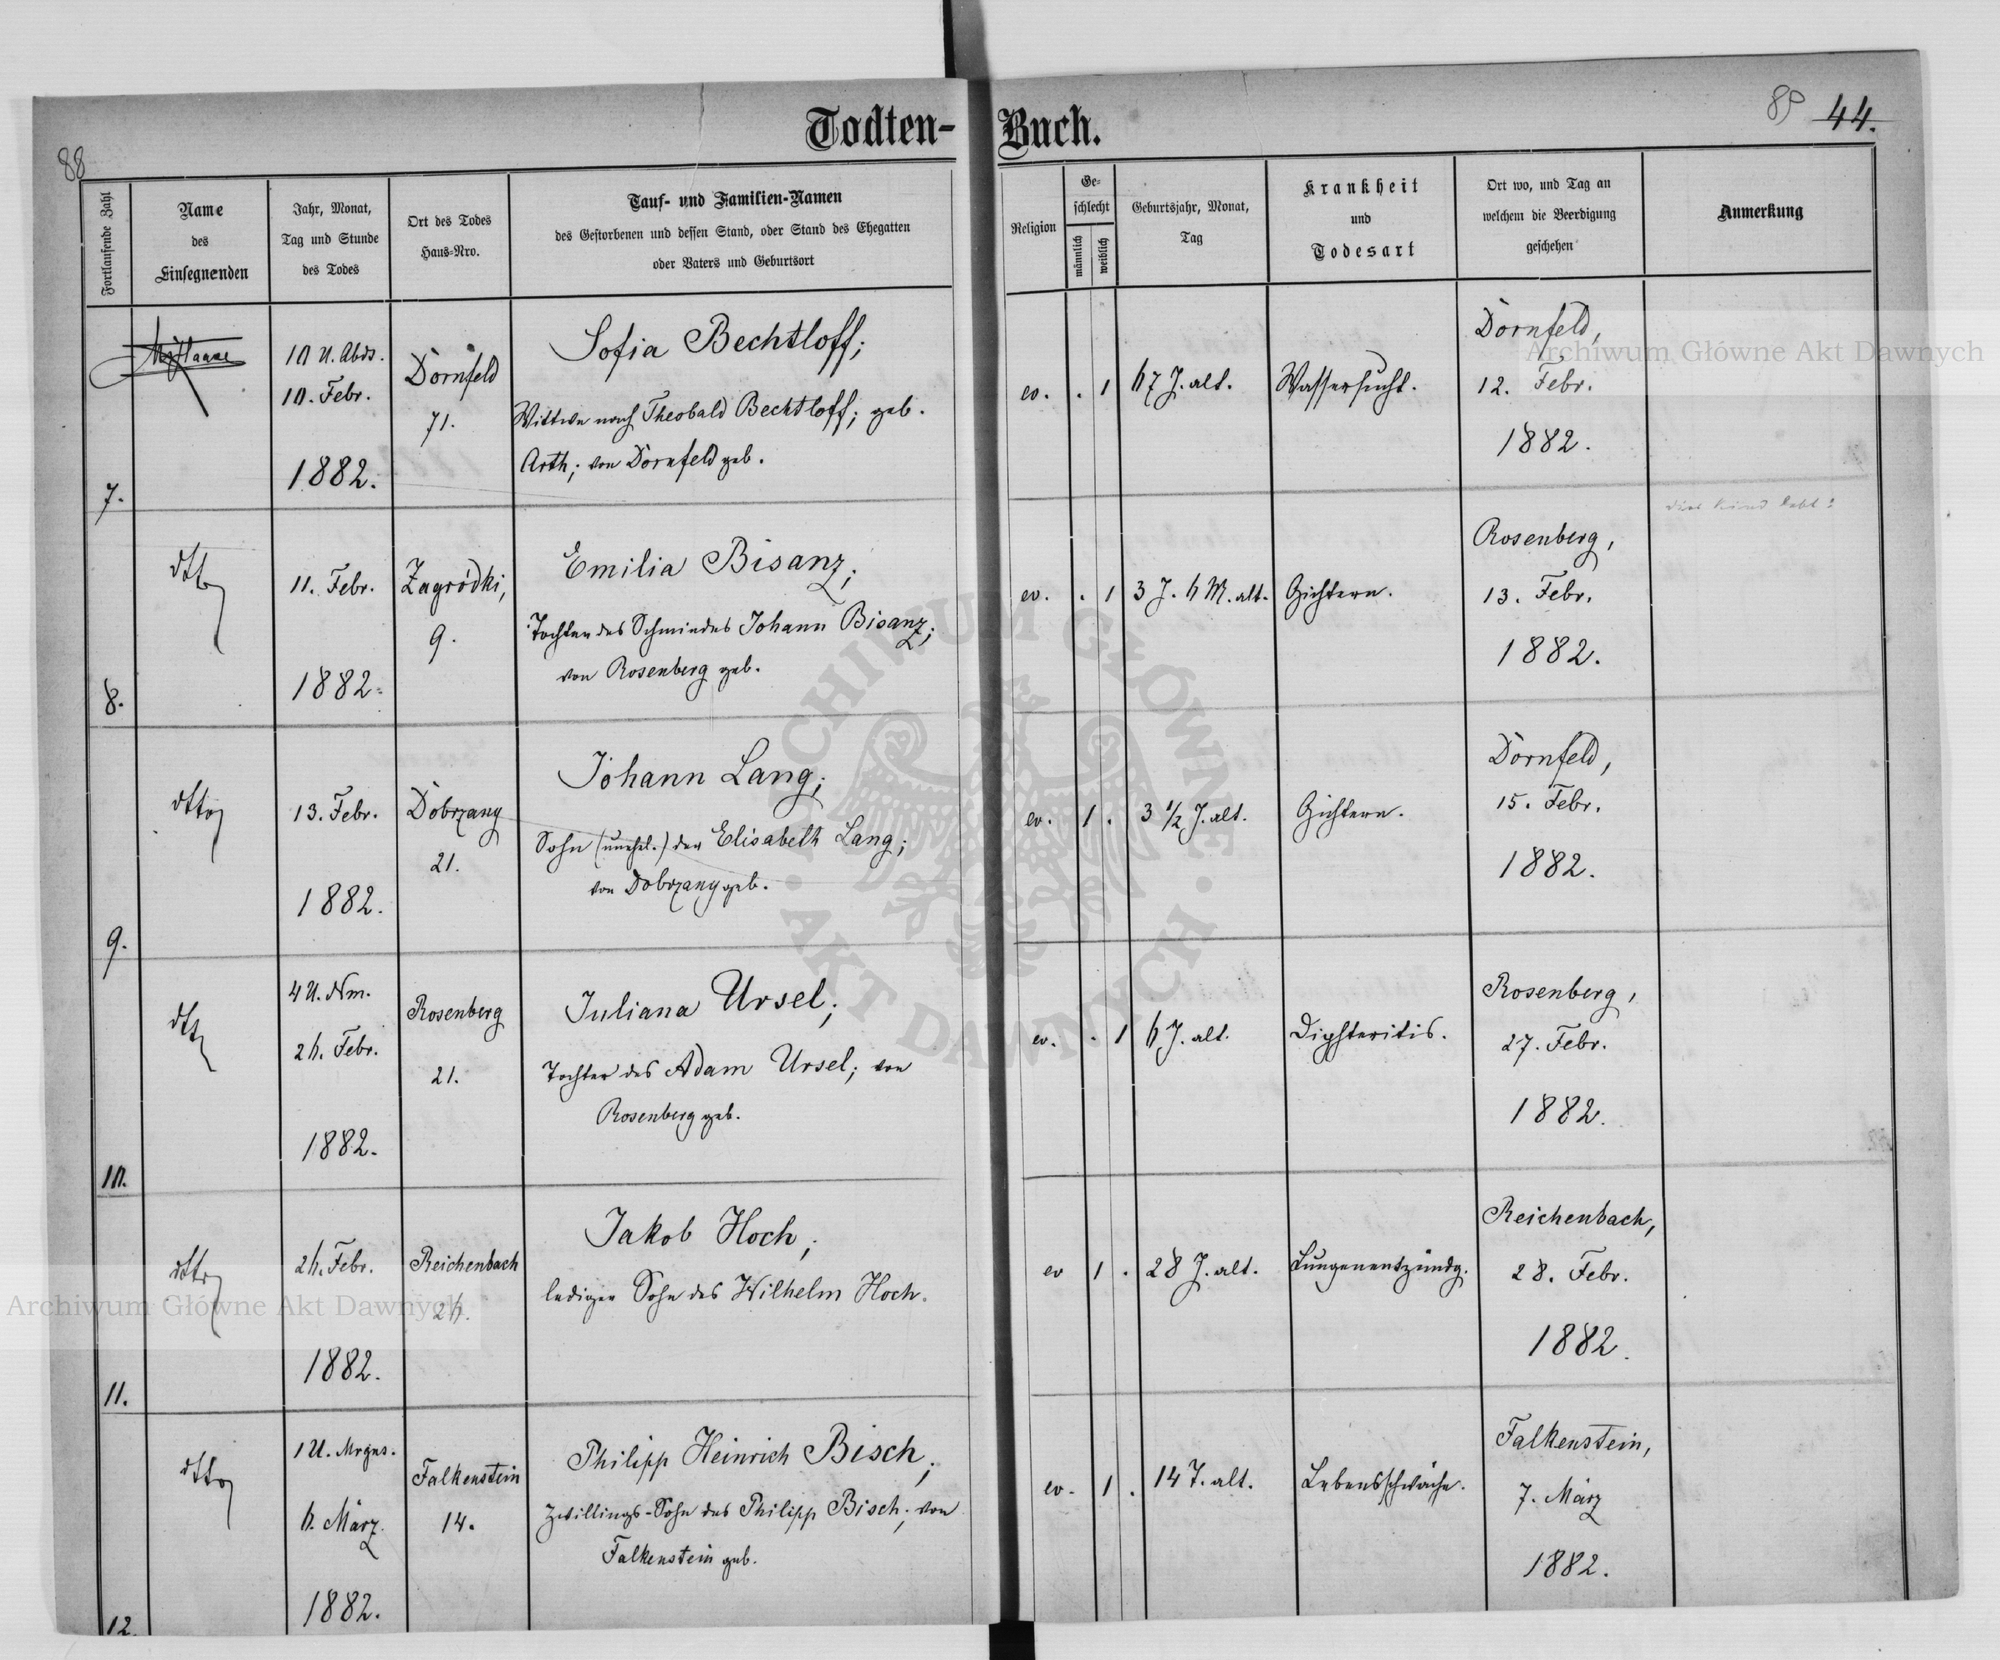 Todten-Buch.
88
89 44.
Fortlaufende Zahl
Name
des
Einsegnenden
Jahr, Monat,
Tag und Stunde
des Todes
Ort des Todes
Haus-Nro.
Tauf- und Familien-Namen
des Gestorbenen und dessen Stand, oder Stand des Ehegatten
oder Vaters und Geburtsort
Religion
Ge-
schlecht
männlich
weiblich
Geburtsjahr, Monat,
Tag
Krankheit
und
Todesart
Ort wo, und Tag an
welchem die Beerdigung
geschehen
Anmerkung
7.
10 U. Abds.
10. Febr.
1882.
Dornfeld
71.
Sofia Bechtloff;
Wittwe nach Theobald Bechtloff; geb.
Arth; von Dornfeld geb.
ev. . 1
67 J. alt.
Wassersucht.
Dornfeld,
12. Febr.
1882.
8.
dtto
11. Febr.
1882.
Zagródki,
9.
Emilia Bisanz;
Tochter des Schmiedes Johann Bisanz;
von Rosenberg geb.
ev. . 1
3 J. 6 M. alt.
Gichtern.
Rosenberg,
13. Febr.
1882.
9.
dtto
13. Febr.
1882.
Dobrzany
21.
Johann Lang;
Sohn (unehel.) der Elisabeth Lang;
von Dobrzany geb.
ev. 1 .
3 1/2 J. alt.
Gichtern.
Dornfeld,
15. Febr.
1882.
10.
dtto
4 U. Nm.
26. Febr.
1882.
Rosenberg
21.
Juliana Ursel;
Tochter des Adam Ursel; von
Rosenberg geb.
ev. . 1
6 J. alt.
Diphteritis.
Rosenberg,
27. Febr.
1882.
11.
dtto
26. Febr.
1882.
Reichenbach
26.
Jakob Hoch;
lediger Sohn des Wilhelm Hoch.
ev 1 .
28 J. alt.
Lungenentzündg.
Reichenbach,
28. Febr.
1882.
12.
dtto
1 U. Mrgns.
6. März
1882.
Falkenstein
14.
Philipp Heinrich Bisch;
Zwillings-Sohn des Philipp Bisch; von
Falkenstein geb.
ev. 1 .
14 T. alt.
Lebensschwäche.
Falkenstein,
7. März
1882.
Archiwum Główne Akt Dawnych
Archiwum Główne Akt Dawnych
ARCHIWUM GŁÓWNE
AKT DAWNYCH